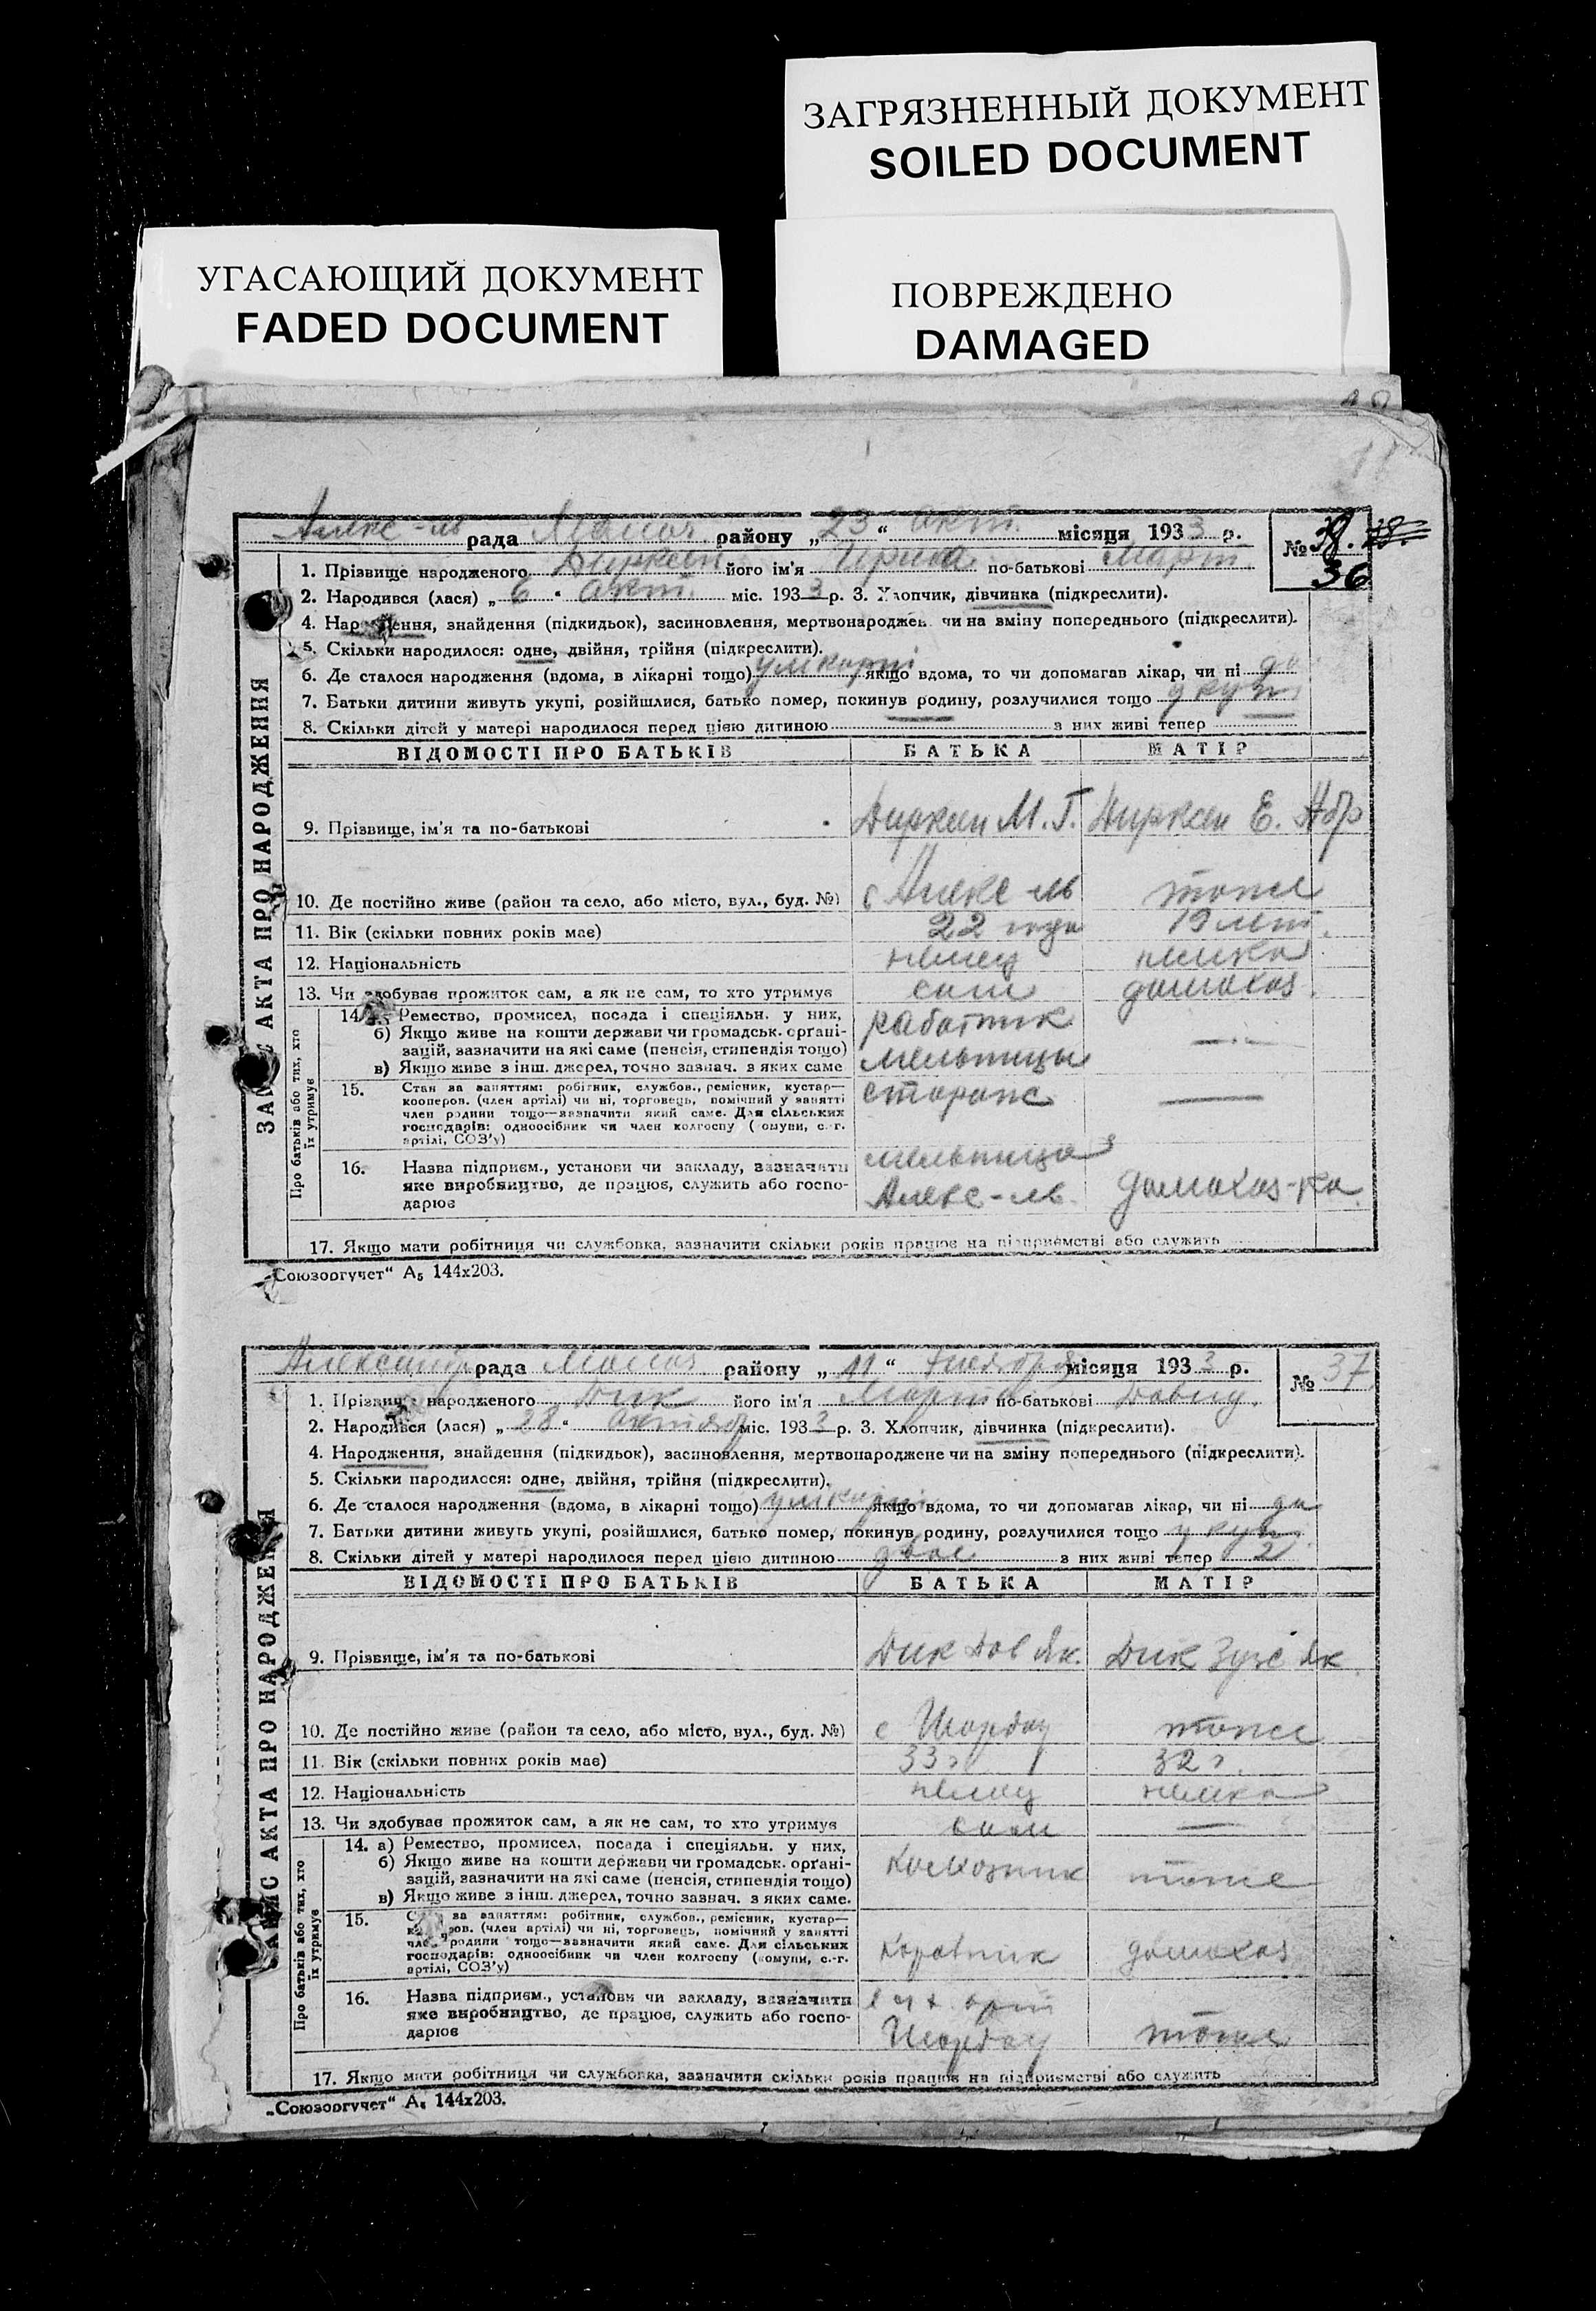 ЗАГРЯЗНЕННЫЙ ДОКУМЕНТ
SOILED DOCUMENT
УГАСАЮЩИЙ ДОКУМЕНТ
FADED DOCUMENT
ПОВРЕЖДЕНО
DAMAGED
Алекс-ль рада района району „23“ окт. місяця 1933 р.
№ 36
1. Прізвище народженого Дирксен його ім'я Ирина по-батькові Март
2. Народився (лася) „6“ окт. міс. 1933 р. 3. Хлопчик, дівчинка (підкреслити).
4. Народження, знайдення (підкидьок), засиновлення, мертвонароджен чи на зміну попереднього (підкреслити).
5. Скільки народилося: одне, двійня, трійня (підкреслити).
6. Де сталося народження (вдома, в лікарні тощо) якщо вдома, то чи допомагав лікар, чи ні да
7. Батьки дитини живуть укупі, розійшлися, батько помер, покинув родину, розлучилися тощо укуп
8. Скільки дітей у матері народилося перед цією дитиною з них живі тепер
ЗАПИС АКТА ПРО НАРОДЖЕННЯ
ВІДОМОСТІ ПРО БАТЬКІВ БАТЬКА МАТІР
9. Прізвище, ім'я та по-батькові Дирксен М. Г. Дирксен Е. Абр
10. Де постійно живе (район та село, або місто, вул., буд. №) с Алекс-ль тоже
11. Вік (скільки повних років має) 22 года 19 лет.
12. Національність немец немка
13. Чи здобуває прожиток сам, а як не сам, то хто утримує сам домохоз.
Про батьків або тих, хто їх утримує
14. Ремество, промисел, посада і спеціяльн. у них, работник
б) Якщо живе на кошти держави чи громадськ. орґані-
зацій, зазначити на які саме (пенсія, стипендія тощо) мельницы
в) Якщо живе з інш. джерел, точно зазнач. з яких саме
15. Стан за заняттям: робітник, службов., ремісник, кустар— сторож
кооперов. (член артілі) чи ні, торговець, помічний у занятті
член родини тощо—зазначити який саме. Для сільських
господарів: одноосібник чи член колгоспу (комуни, с.-г.
артілі, СОЗ'у)
16. Назва підприєм., установи чи закладу, зазначити мельница
яке виробництво, де працює, служить або госпо- Алекс-ль. домохоз-ка.
дарює
17. Якщо мати робітниця чи службовка, зазначити скільки років працює на підприємстві або служить
„Союзоргучет“ А₅ 144х203.
Александр рада району „11“ місяця 1933 р.
№ 37
1. Прізвище народженого Дик його ім'я Марта по-батькові Давид.
2. Народився (лася) „28“ октябр міс. 1933 р. 3. Хлопчик, дівчинка (підкреслити).
4. Народження, знайдення (підкидьок), засиновлення, мертвонароджене чи на зміну попереднього (підкреслити).
5. Скільки народилося: одне, двійня, трійня (підкреслити).
6. Де сталося народження (вдома, в лікарні тощо) якщо вдома, то чи допомагав лікар, чи ні да
7. Батьки дитини живуть укупі, розійшлися, батько помер, покинув родину, розлучилися тощо укуп.
8. Скільки дітей у матері народилося перед цією дитиною двое з них живі тепер 2
ЗАПИС АКТА ПРО НАРОДЖЕННЯ
ВІДОМОСТІ ПРО БАТЬКІВ БАТЬКА МАТІР
9. Прізвище, ім'я та по-батькові Дик Дав Як. Дик Зузе Як
10. Де постійно живе (район та село, або місто, вул., буд. №) с Шардау тоже
11. Вік (скільки повних років має) 33 г 32 г.
12. Національність немец немка
13. Чи здобуває прожиток сам, а як не сам, то хто утримує сам
Про батьків або тих, хто їх утримує
14. а) Ремество, промисел, посада і спеціяльн. у них,
б) Якщо живе на кошти держави чи громадськ. орґані- колхозник тоже
зацій, зазначити на які саме (пенсія, стипендія тощо)
в) Якщо живе з інш. джерел, точно зазнач. з яких саме.
15. Стан за заняттям: робітник, службов., ремісник, кустар—
кооперов. (член артілі) чи ні, торговець, помічний у занятті
член родини тощо—зазначити який саме. Для сільських
господарів: одноосібник чи член колгоспу (комуни, с.-г. коровник домохоз
артілі, СОЗ'у)
16. Назва підприєм., установи чи закладу, зазначити
яке виробництво, де працює, служить або госпо- Шардау тоже
дарює
17. Якщо мати робітниця чи службовка, зазначити скільки років працює на підприємстві або служить
„Союзоргучет“ А₅ 144х203.